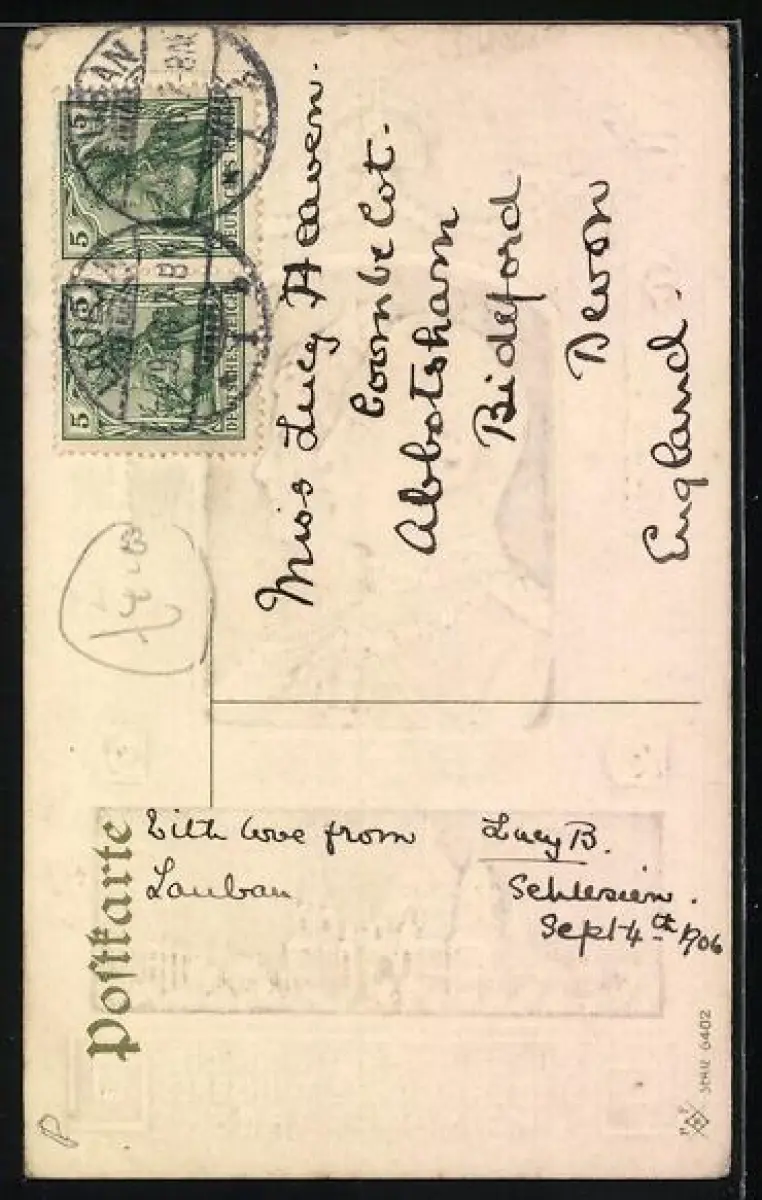 Postkarte
LAUBAN
5 5
DEUTSCHES REICH
LAUBAN
5 5
DEUTSCHES REICH
Miss Lucy Heaven.
Combe Cot.
Abbotsham
Bideford
Devon
England.
With love from Lucy B.
Lauban Schlesien.
Sept 4th 1906
SERIE 6402